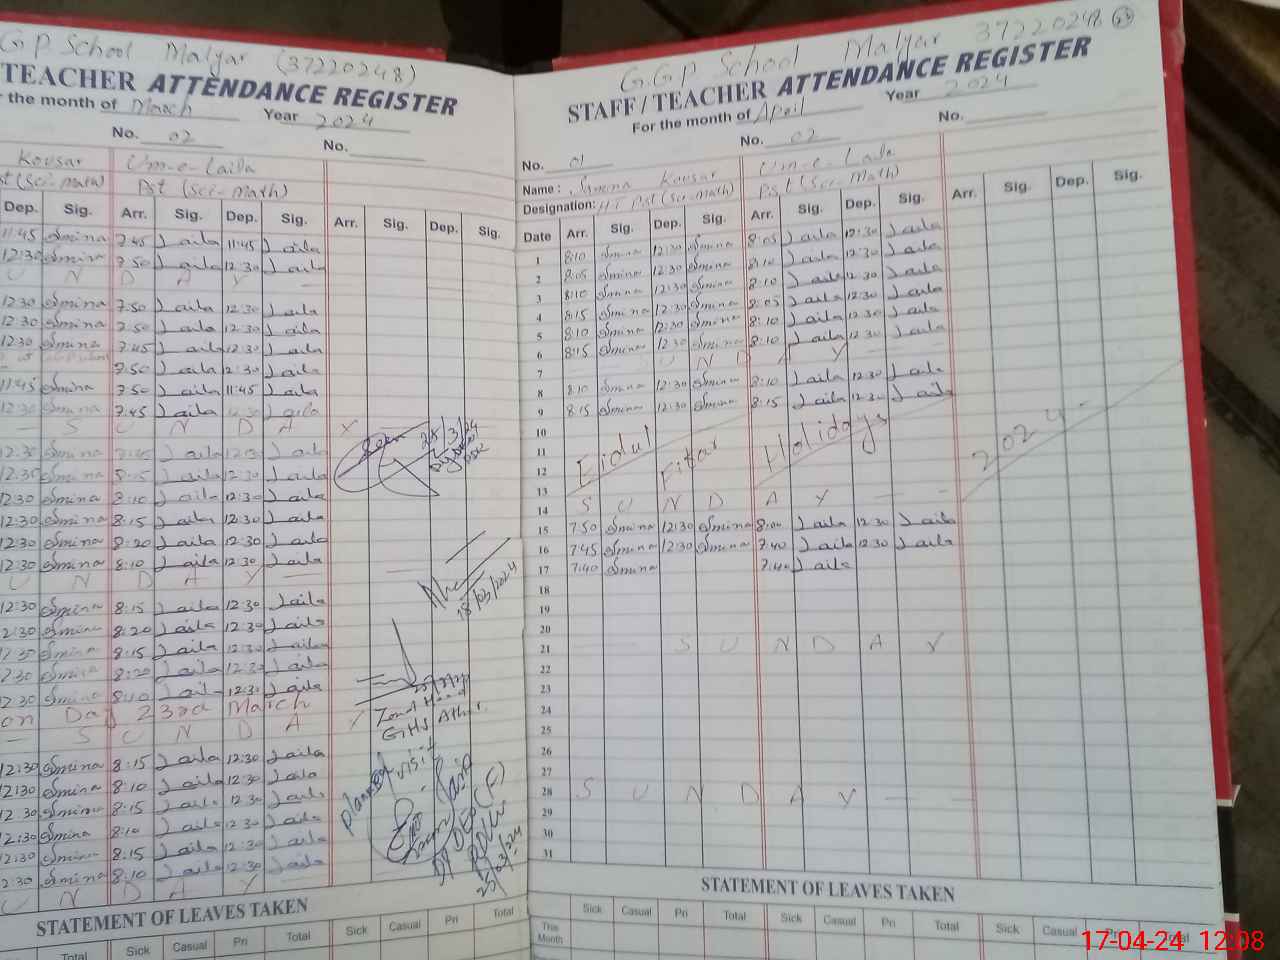 G P School Malyar (37220248)
TEACHER ATTENDANCE REGISTER
r the month of March Year 2024
No. 02 No.
Kousar Um-e-Laila
st (Sci-math) Pst (Sci-Math)
Dep. Sig. Arr. Sig. Dep. Sig. Arr. Sig. Dep. Sig.
11:45 Smina 7:45 Laila 11:45 Laila
12:30 Smina 7:50 Laila 12:30 Laila
U N D A Y
12:30 Smina 7:50 Laila 12:30 Laila
12:30 Smina 7:50 Laila 12:30 Laila
12:30 Smina 7:45 Laila 12:30 Laila
7:50 Laila 12:30 Laila
11:45 Smina 7:50 Laila 11:45 Laila
12:30 Smina 7:45 Laila Laila
S U N D A Y
12:30 Smina Laila Laila
12:30 Smina 8:15 Laila 12:30 Laila
12:30 Smina 8:10 Laila 12:30 Laila
12:30 Smina 8:15 Laila 12:30 Laila
12:30 Smina 8:20 Laila 12:30 Laila
12:30 Smina 8:10 Laila 12:30 Laila
U N D A Y
12:30 Smina 8:15 Laila 12:30 Laila
2:30 Smina 8:20 Laila 12:30 Laila
Smina 8:15 Laila 12:30 Laila
2:30 Smina 8:20 Laila 12:30 Laila
2:30 Smina 8:10 Laila 12:30 Laila
on Day 23rd March
S U N D A Y
12:30 Smina 8:15 Laila 12:30 Laila
12:30 Smina 8:10 Laila 12:30 Laila
12:30 Smina 8:15 Laila 12:30 Laila
12:30 Smina 8:10 Laila 12:30 Laila
12:30 Smina 8:15 Laila 12:30 Laila
2:30 Smina 8:10 Laila 12:30 Laila
U N D A Y
Seen
18/03/2024
Zonal Head
GHS
visit
Dy DEO (F)
25/03/24
STATEMENT OF LEAVES TAKEN
Sick Casual Pri Total Sick Casual Pri Total
Total
G.G.P School Malyar 37220248
STAFF / TEACHER ATTENDANCE REGISTER
For the month of April Year 2024
No. 01 No. 02 No.
Name : Samina Kousar Um-e-Laila
Designation: Pst (Sci-math) Pst (Sci-Math)
Date Arr. Sig. Dep. Sig. Arr. Sig. Dep. Sig. Arr. Sig. Dep. Sig.
1 8:10 Smina 12:30 Smina 8:05 Laila 12:30 Laila
2 8:05 Smina 12:30 Smina 8:10 Laila 12:30 Laila
3 8:10 Smina 12:30 Smina 8:10 Laila 12:30 Laila
4 8:15 Smina 12:30 Smina 8:05 Laila 12:30 Laila
5 8:10 Smina 12:30 Smina 8:10 Laila 12:30 Laila
6 8:15 Smina 12:30 Smina 8:10 Laila 12:30 Laila
7 S U N D A Y
8 8:10 Smina 12:30 Smina 8:10 Laila 12:30 Laila
9 8:15 Smina 12:30 Smina 8:15 Laila 12:30 Laila
10
11
12 Eidul Fitar Holidays 2024
13
14 S U N D A Y
15 7:50 Smina 12:30 Smina 8:00 Laila 12:30 Laila
16 7:45 Smina 12:30 Smina 7:40 Laila 12:30 Laila
17 7:40 Smina 7:40 Laila
18
19
20
21 S U N D A Y
22
23
24
25
26
27
28 S U N D A Y
29
30
31
STATEMENT OF LEAVES TAKEN
Sick Casual Pri Total Sick Casual Pri Total Sick Casual Pri Total
This Month
17-04-24 12:08